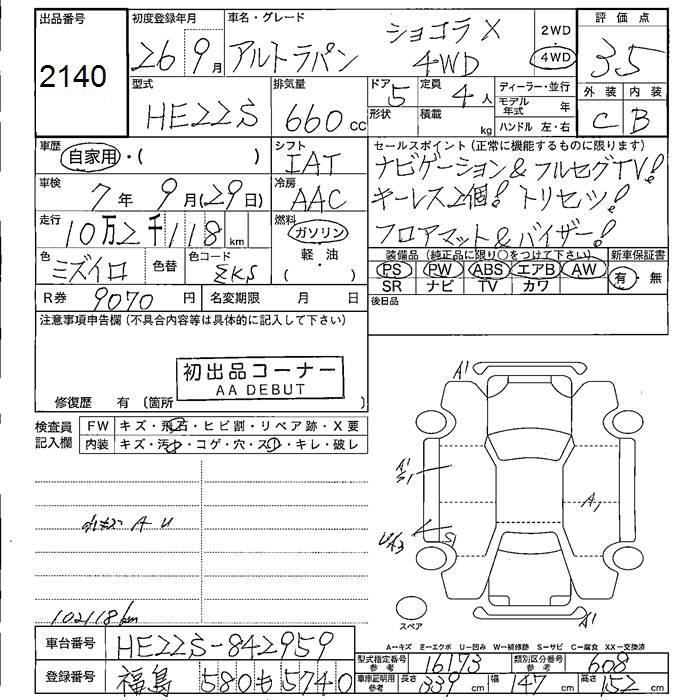 出品番号
2140
初度登録年月
26 9月
車名・グレード
アルトラパン ショコラ X 4WD
2WD
4WD
評価点
3.5
外装 内装
C B
型式
HE22S
排気量
660cc
ドア 5
形状
定員 4人
積載 kg
ディーラー・並行
モデル年式 年
ハンドル 左・右
車歴
自家用・( )
シフト
IAT
車検
7年 9月(29日)
冷房
AAC
走行
10万2千118km
燃料
ガソリン
軽・油
( )
色
ミズイロ
色替
色コード
ZKS
R券 9070円
名変期限 月 日
セールスポイント(正常に機能するものに限ります)
ナビゲーション&フルセグTV!
キーレス2個!トリセツ!
フロアマット&バイザー!
装備品(純正品に限り○をつけて下さい)
PS PW ABS エアB AW
SR ナビ TV カワ
新車保証書
有・無
後日品
注意事項申告欄(不具合内容等は具体的に記入して下さい)
初出品コーナー
AA DEBUT
修復歴 有(箇所 )
検査員
記入欄
FW キズ・飛石・ヒビ割・リペア跡・X要
内装 キズ・汚れ・コゲ・穴・スレ・キレ・破レ
A U
102118km
A1
A1
S1
A1
S1
A1
スペア
A=キズ E=エクボ U=凹み W=補修跡 S=サビ C=腐食 XX=交換済
車台番号 HE22S-842959
登録番号 福島 580 も 5740
型式指定番号
参考
16173
類別区分番号
参考
608
車庫証明用
参考
長さ 339cm
幅 147cm
高さ 152cm